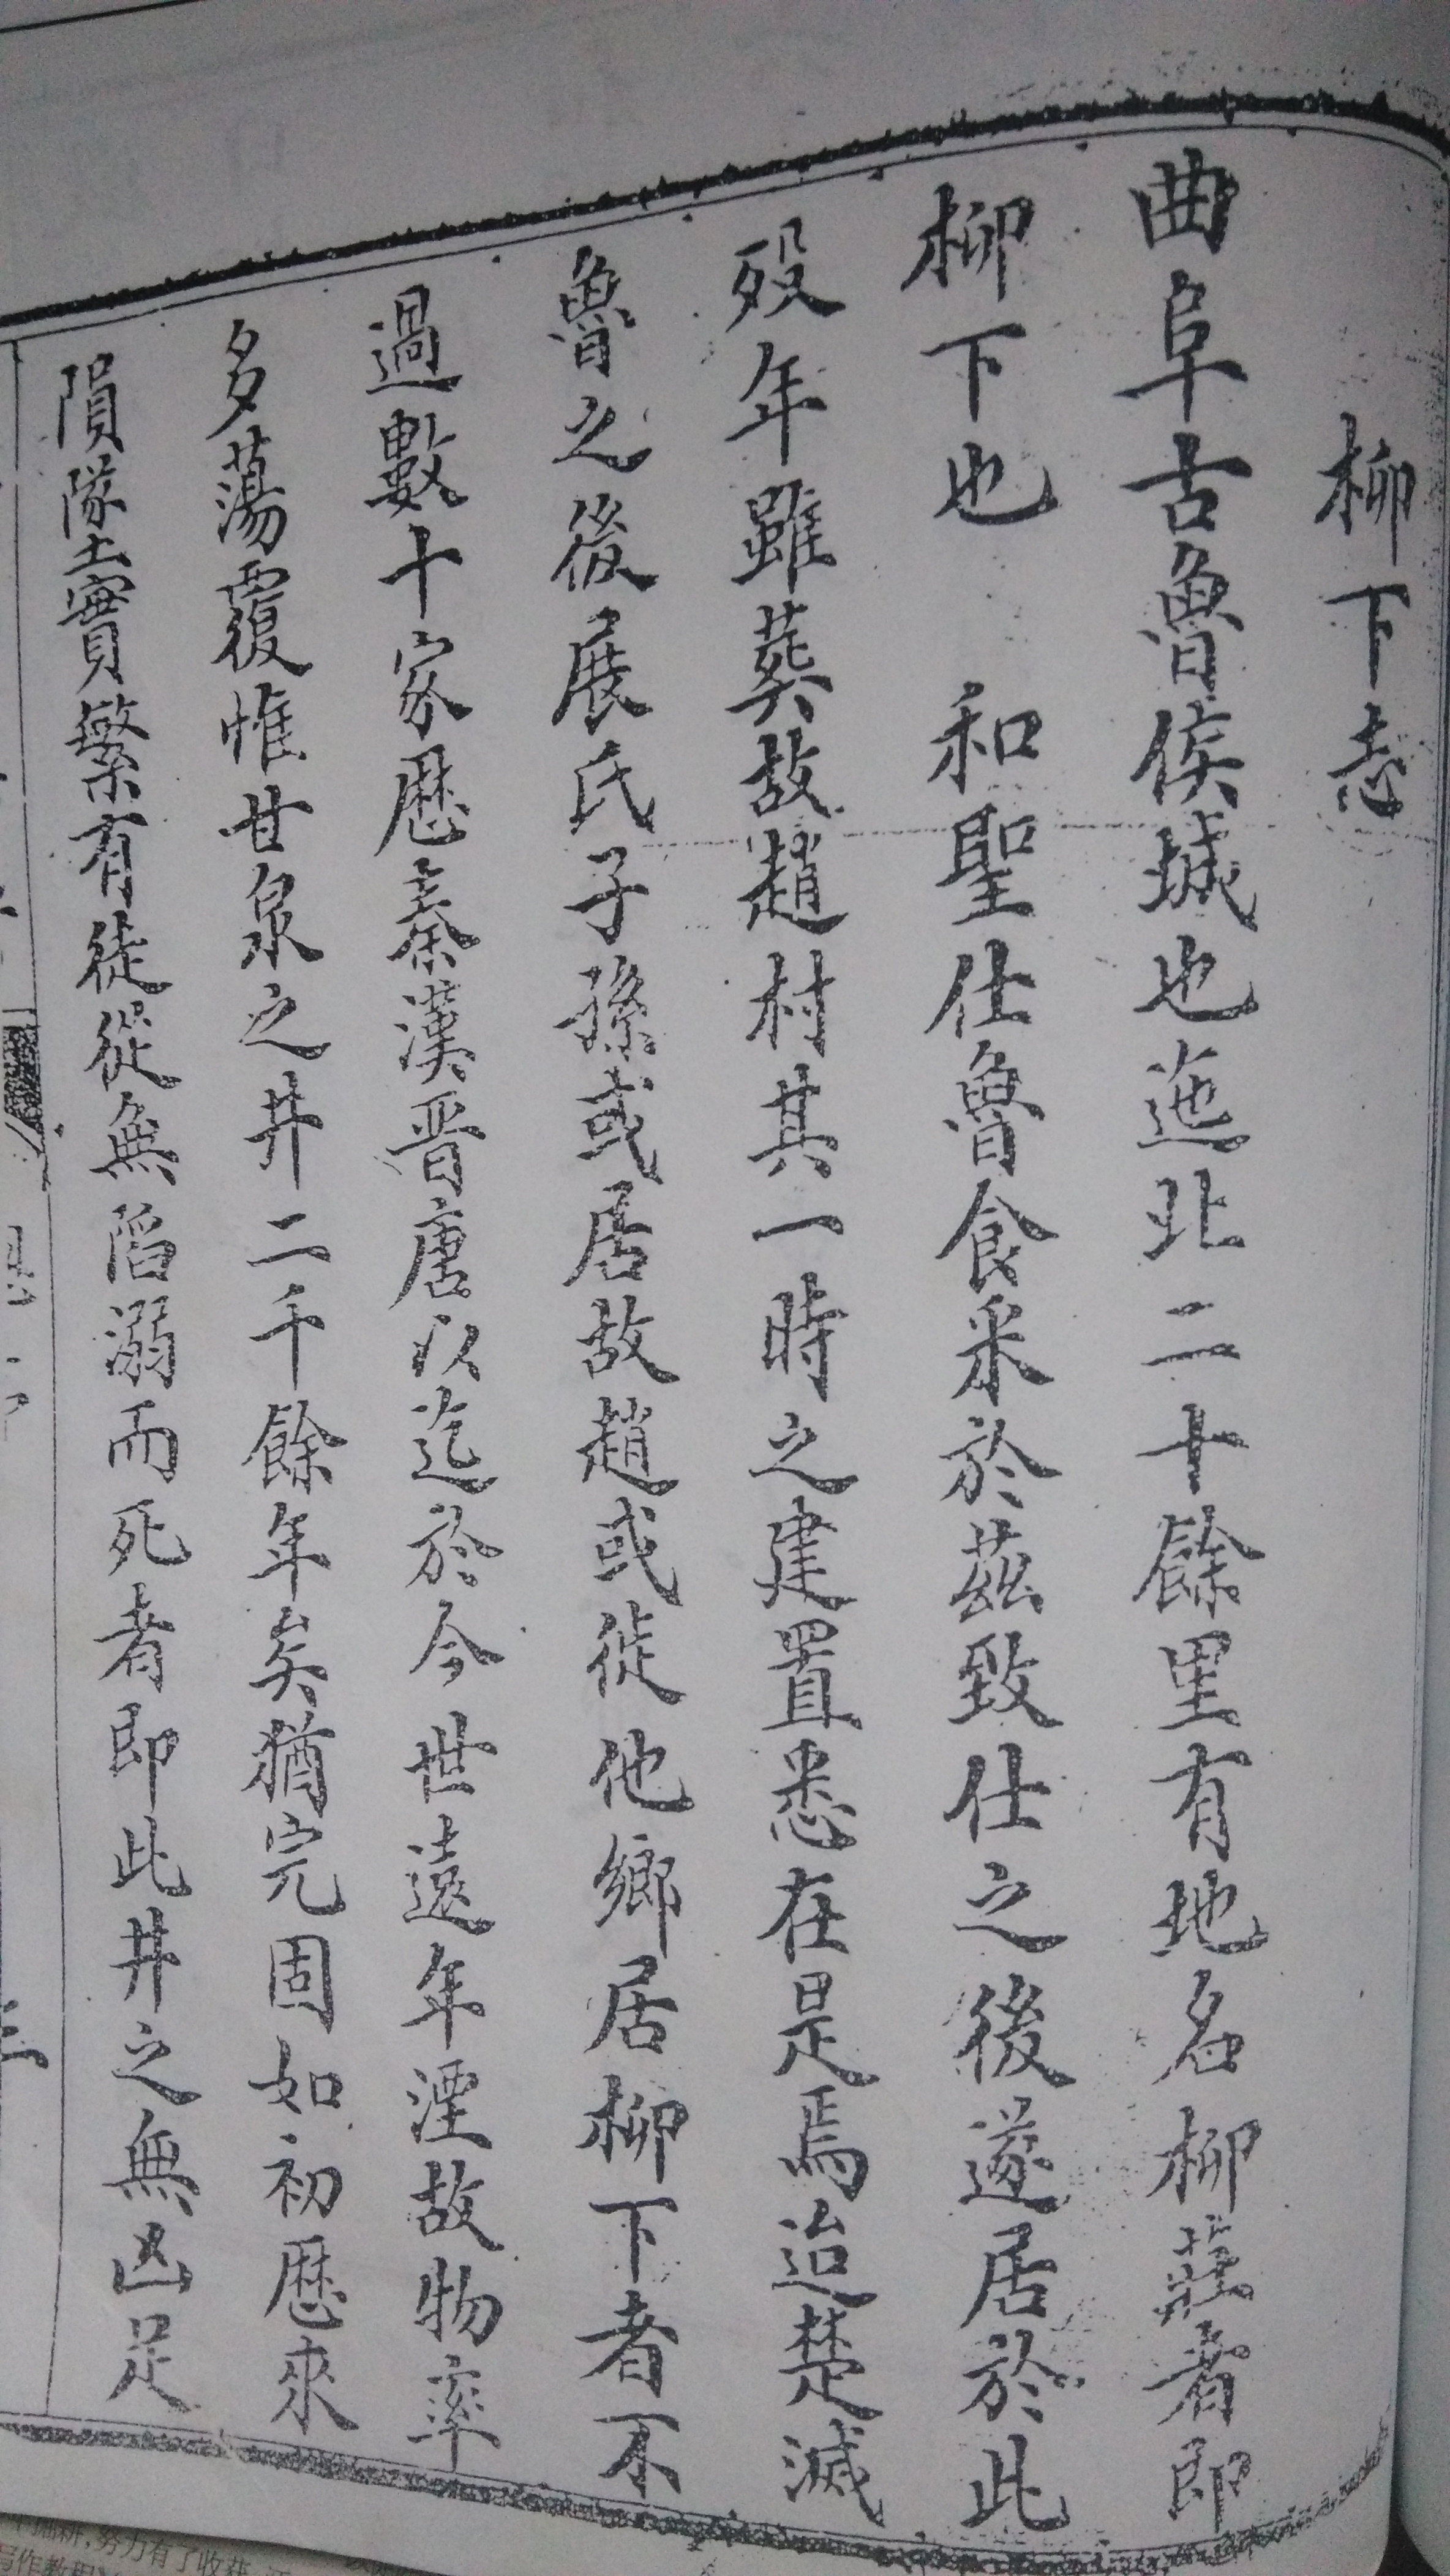 柳下志
曲阜古魯侯城也迤北二十餘里有地名柳莊者即
柳下也　和聖仕魯食采於茲致仕之後遂居於此
歿年雖葬故趙村其一時之建置悉在是焉迨楚滅
魯之後展氏子孫或居故趙或徙他鄉居柳下者不
過數十家歷秦漢晋唐以迄於今世遠年湮故物率
多蕩覆惟甘泉之井二千餘年矣猶完固如初歷來
隕隊土實繁有徒從無陷溺而死者即此井之無凶足
三